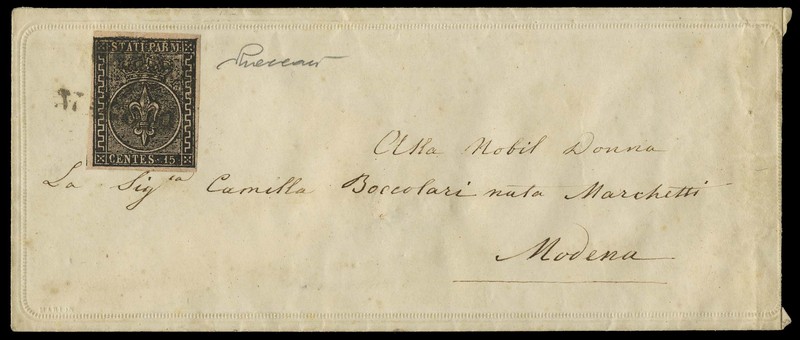 STATI PARM.
CENTES. 15
Alla Nobil Donna
La Sig.ra Camilla Boccolari nata Marchetti
Modena